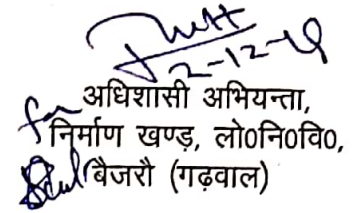 2-12-19
for अधिशासी अभियन्ता,
निर्माण खण्ड, लो0नि0वि0,
बैजरौ (गढ़वाल)